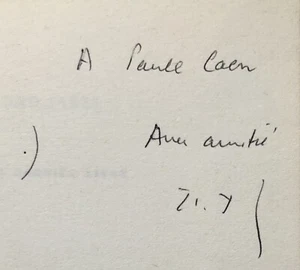 A Paule Caen
Avec amitié